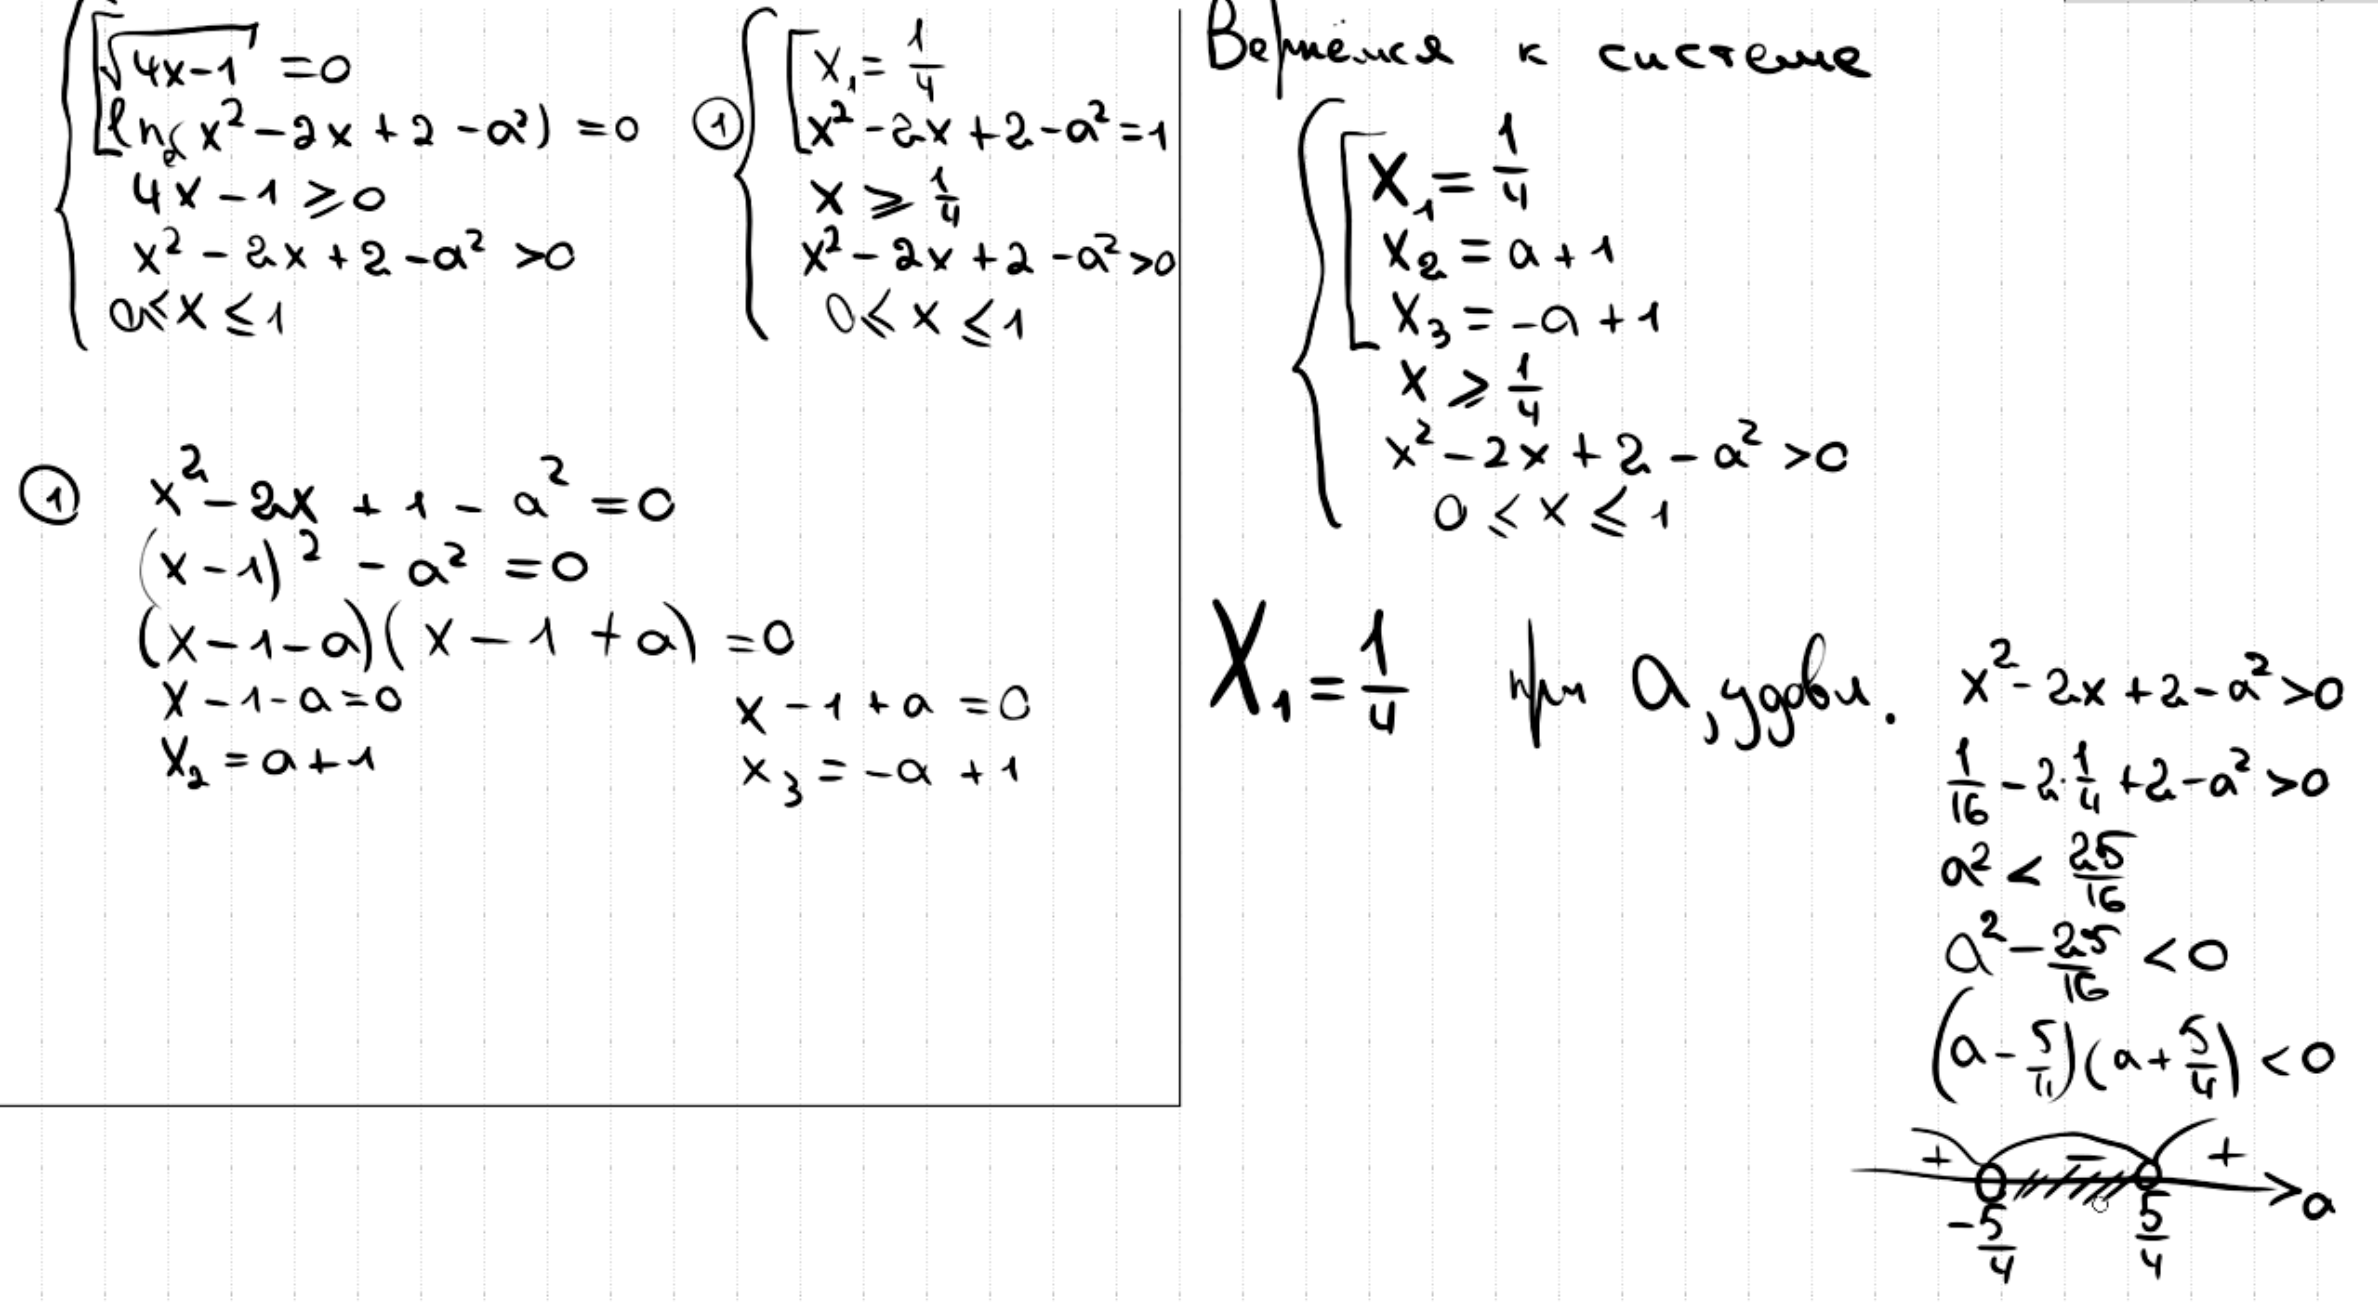 √(4x-1) = 0
ln(x² - 2x + 2 - a²) = 0
4x - 1 ⩾ 0
x² - 2x + 2 - a² > 0
0 ≤ x ≤ 1
①
x₁ = 1/4
x² - 2x + 2 - a² = 1
x ⩾ 1/4
x² - 2x + 2 - a² > 0
0 ⩽ x ⩽ 1
① x² - 2x + 1 - a² = 0
(x - 1)² - a² = 0
(x - 1 - a)(x - 1 + a) = 0
x - 1 - a = 0
x₂ = a + 1
x - 1 + a = 0
x₃ = -a + 1
Вернёмся к системе
x₁ = 1/4
x₂ = a + 1
x₃ = -a + 1
x ⩾ 1/4
x² - 2x + 2 - a² > 0
0 ⩽ x ⩽ 1
x₁ = 1/4 при a, удовл. x² - 2x + 2 - a² > 0
1/16 - 2·1/4 + 2 - a² > 0
a² < 25/16
a² - 25/16 < 0
(a - 5/4)(a + 5/4) < 0
+ - +
-5/4 5/4 a